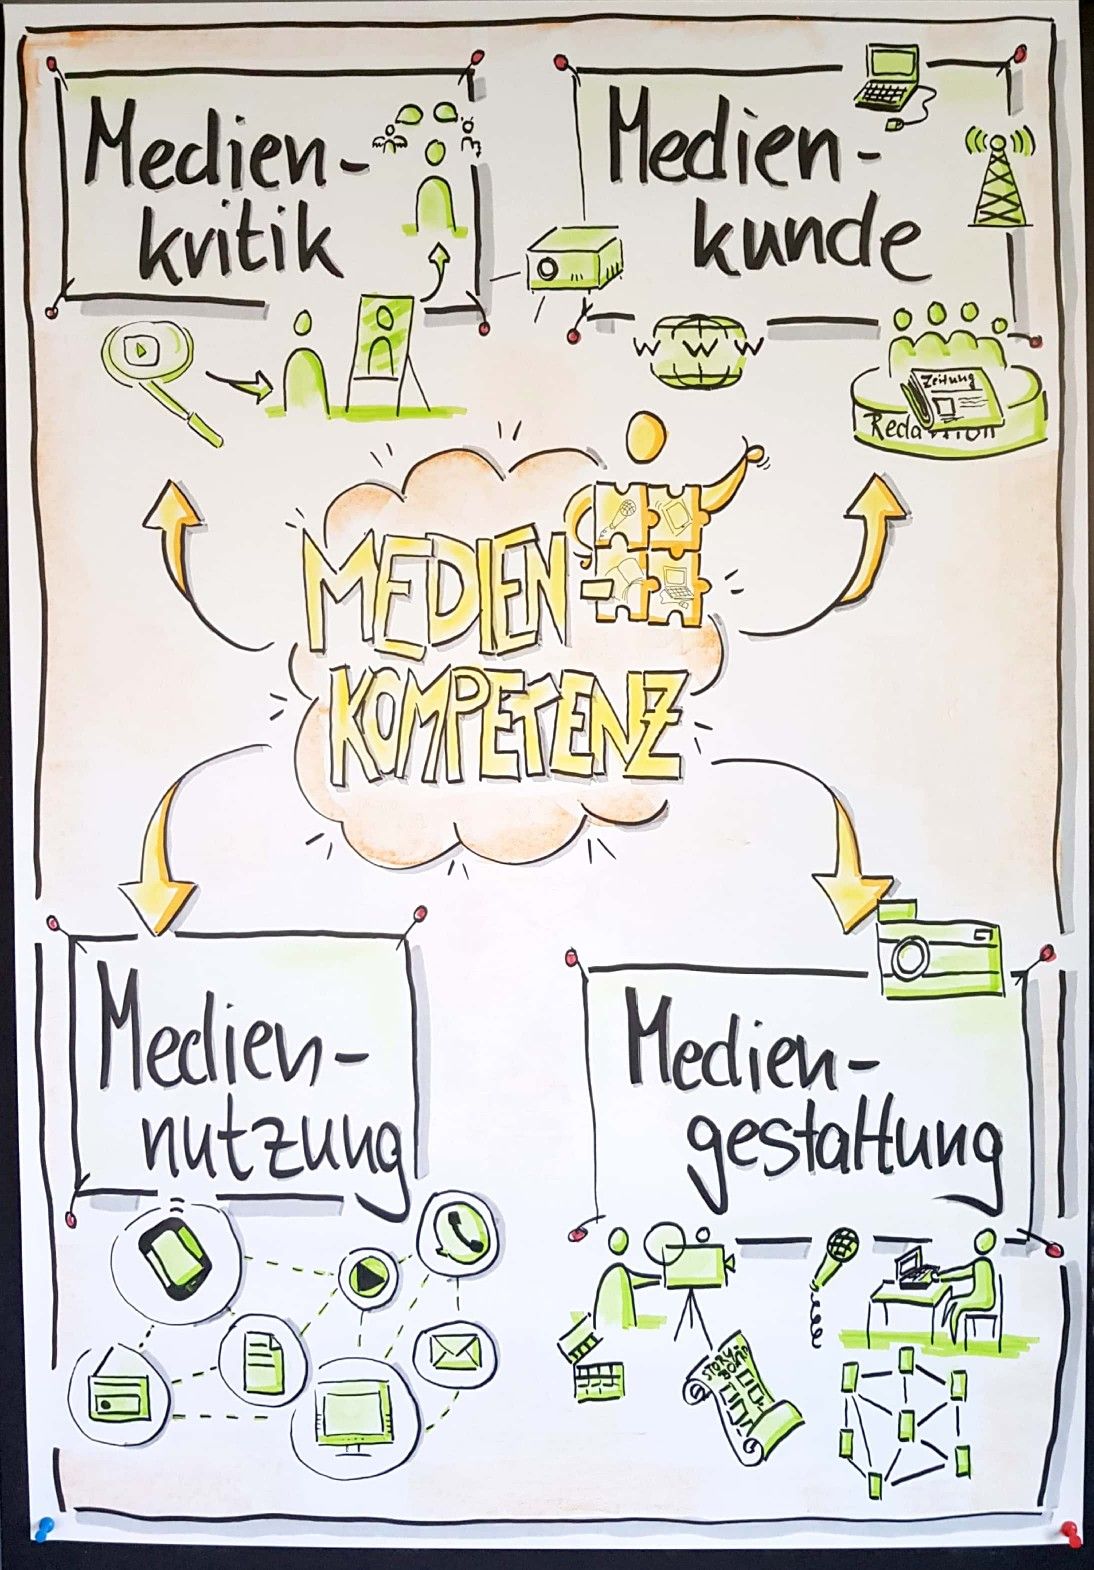 Medien-
kritik
Medien-
kunde
W W W
Zeitung
Redaktion
MEDIEN-
KOMPETENZ
Medien-
nutzung
Medien-
gestaltung
STORY-
BOARD